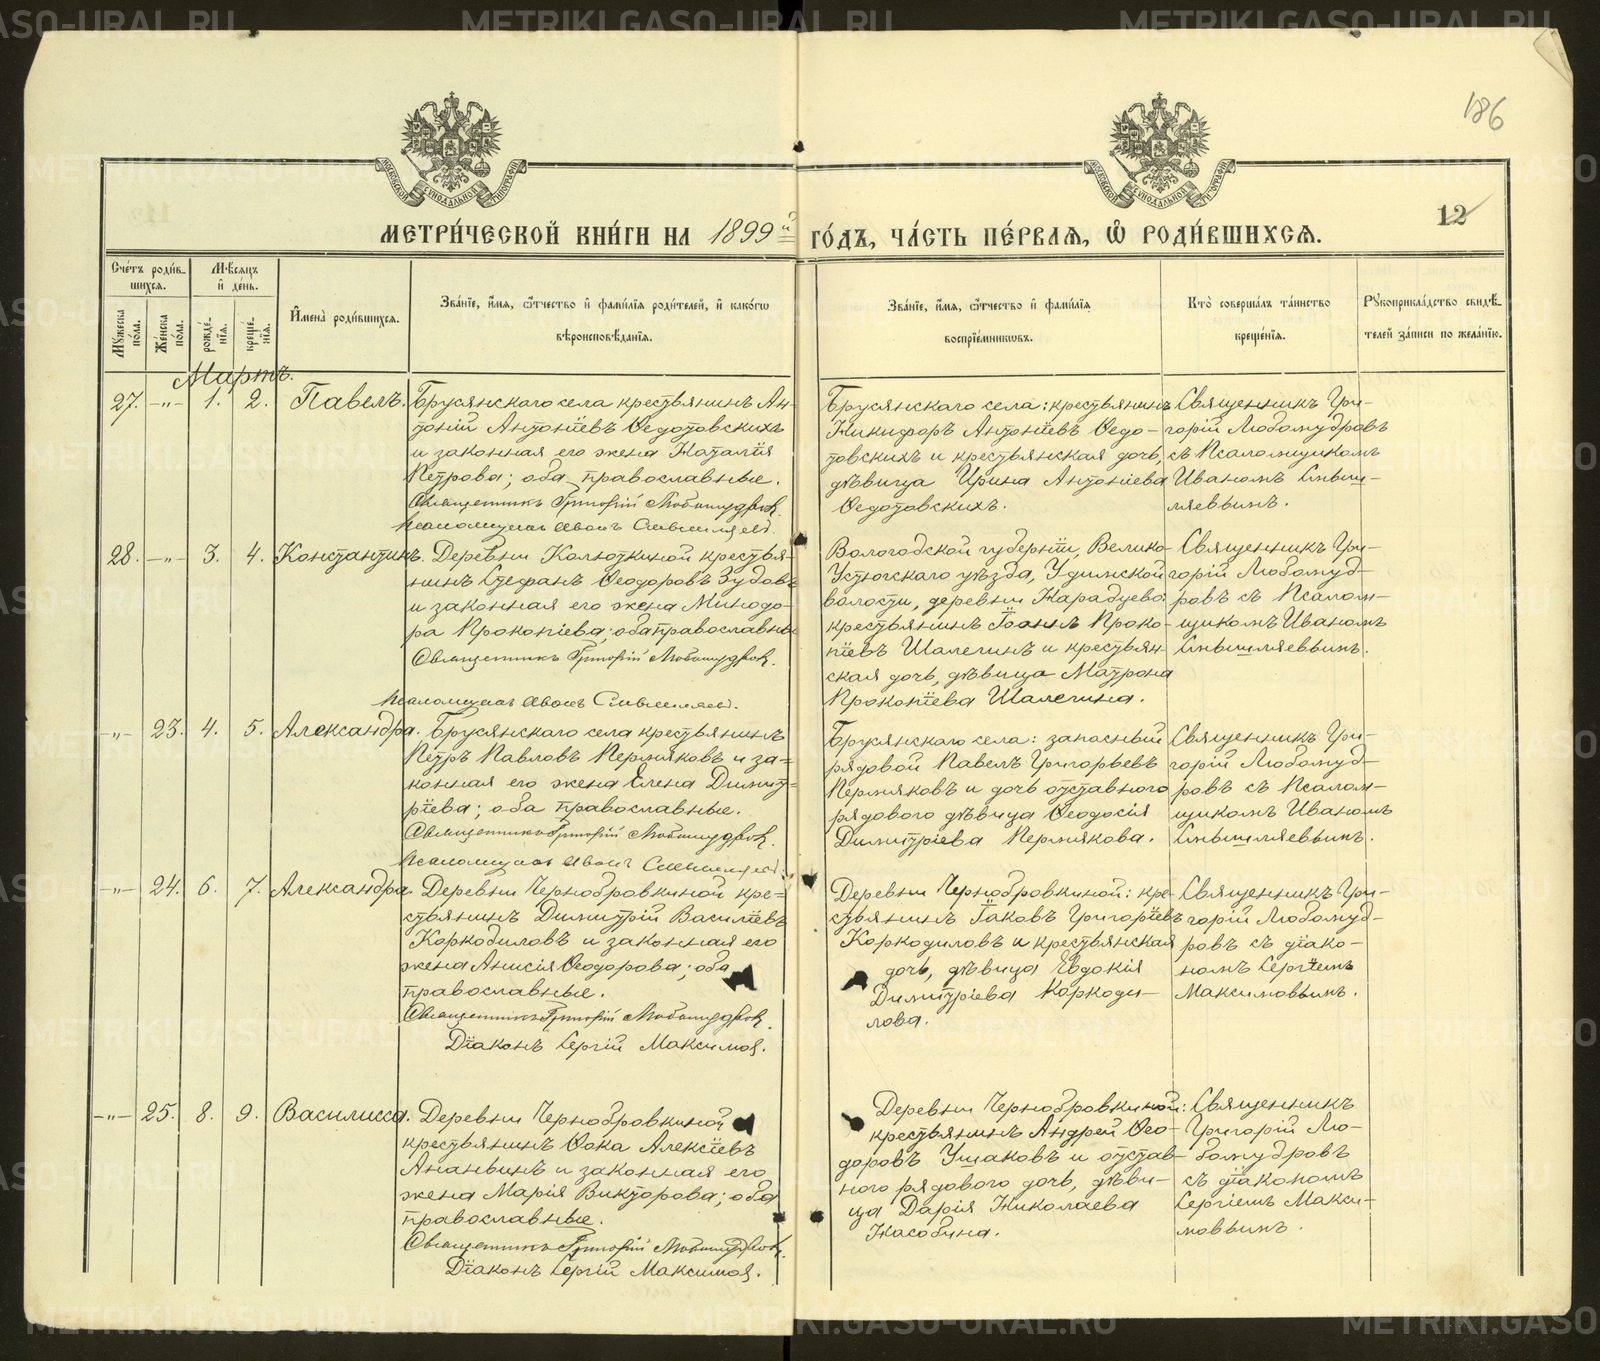 METRIKI.GASO-URAL.RU
186
12
МЕТРИ́ЧЕСКОЙ КНИ́ГИ НА 1899й ГО́ДЪ, ЧА́СТЬ ПЕ́РВАЯ, Ѡ РОДИ́ВШИХСЯ.
Счетъ роди́вшихся.
Мꙋжеска по́ла.
Же́нска по́ла.
Мѣ́сяцъ и҆ де́нь.
рожде́нїя.
креще́нїя.
И҆мена̀ роди́вшихся.
Зва́нїе, и҆́мя, ѻ҆́тчество и҆ фами́лїѧ роди́телей, и҆ како́гѡ
вѣроисповѣ́данїя.
Зва́нїе, и҆́мя, ѻ҆́тчество и҆ фами́лїѧ
воспрїе́мникѡвъ.
Кто̀ соверша́лъ та́инство
креще́нїя.
Рꙋкоприкла́дство свидѣ́-
телей за́писи по жела́нїю.
Мартъ.
27. -"- 1. 2. Павелъ.
Брусянскаго села крестьянинъ Ан-
тоній Антоніевъ Ѳедотовскихъ
и законная его жена Наталія
Петрова; оба православные.
Священникъ Григорій Любомудровъ.
Псаломщикъ Иванъ Смышляевъ.
Брусянскаго села: крестьянинъ
Никифоръ Антоніевъ Ѳедо-
товскихъ и крестьянская дочь,
дѣвица Ирина Антоніева
Ѳедотовскихъ.
Священникъ Гри-
горій Любомудровъ
съ Псаломщикомъ
Иваномъ Смыш-
ляевымъ.
28. -"- 3. 4. Константинъ.
Деревни Колюткиной крестья-
нинъ Стефанъ Ѳеодоровъ Зудовъ
и законная его жена Минодо-
ра Прокопіева; оба православные
Священникъ Григорій Любомудровъ.
Псаломщикъ Иванъ Смышляевъ.
Вологодской губерніи, Велико-
Устюгскаго уѣзда, Удимской
волости, деревни Карадуево:
крестьянинъ Іоаннъ Проко-
піевъ Шалегинъ и крестьян-
ская дочь, дѣвица Матрона
Прокопіева Шалегина.
Священникъ Гри-
горій Любомуд-
ровъ съ Псалом-
щикомъ Иваномъ
Смышляевымъ.
-"- 23. 4. 5. Александра.
Брусянскаго села крестьянинъ
Петръ Павловъ Пермяковъ и за-
конная его жена Елена Димит-
ріева; оба православные.
Священникъ Григорій Любомудровъ.
Псаломщикъ Иванъ Смышляевъ.
Брусянскаго села: запасный
рядовой Павелъ Григорьевъ
Пермяковъ и дочь отставного
рядового дѣвица Ѳеодосія
Димитріева Пермякова.
Священникъ Гри-
горій Любомуд-
ровъ съ Псалом-
щикомъ Иваномъ
Смышляевымъ.
-"- 24. 6. 7. Александра.
Деревни Чернобровкиной кре-
стьянинъ Димитрій Василіевъ
Коркодиловъ и законная его
жена Анисія Ѳеодорова; оба
православные.
Священникъ Григорій Любомудровъ.
Діаконъ Сергій Максимовъ.
Деревни Чернобровкиной: кре-
стьянинъ Іаковъ Григоріевъ
Коркодиловъ и крестьянская
дочь, дѣвица Евдокія
Димитріева Коркоди-
лова.
Священникъ Гри-
горій Любомуд-
ровъ съ діако-
номъ Сергіемъ
Максимовымъ.
-"- 25. 8. 9. Василисса.
Деревни Чернобровкиной
крестьянинъ Ѳока Алексіевъ
Ананьинъ и законная его
жена Марія Викторова; оба
православные.
Священникъ Григорій Любомудровъ.
Діаконъ Сергій Максимовъ.
Деревни Чернобровкиной:
крестьянинъ Андрей Ѳео-
доровъ Ушаковъ и отстав-
ного рядового дочь, дѣви-
ца Дарія Николаева
Насобина.
Священникъ
Григорій Лю-
бомудровъ
съ діакономъ
Сергіемъ Макси-
мовымъ.